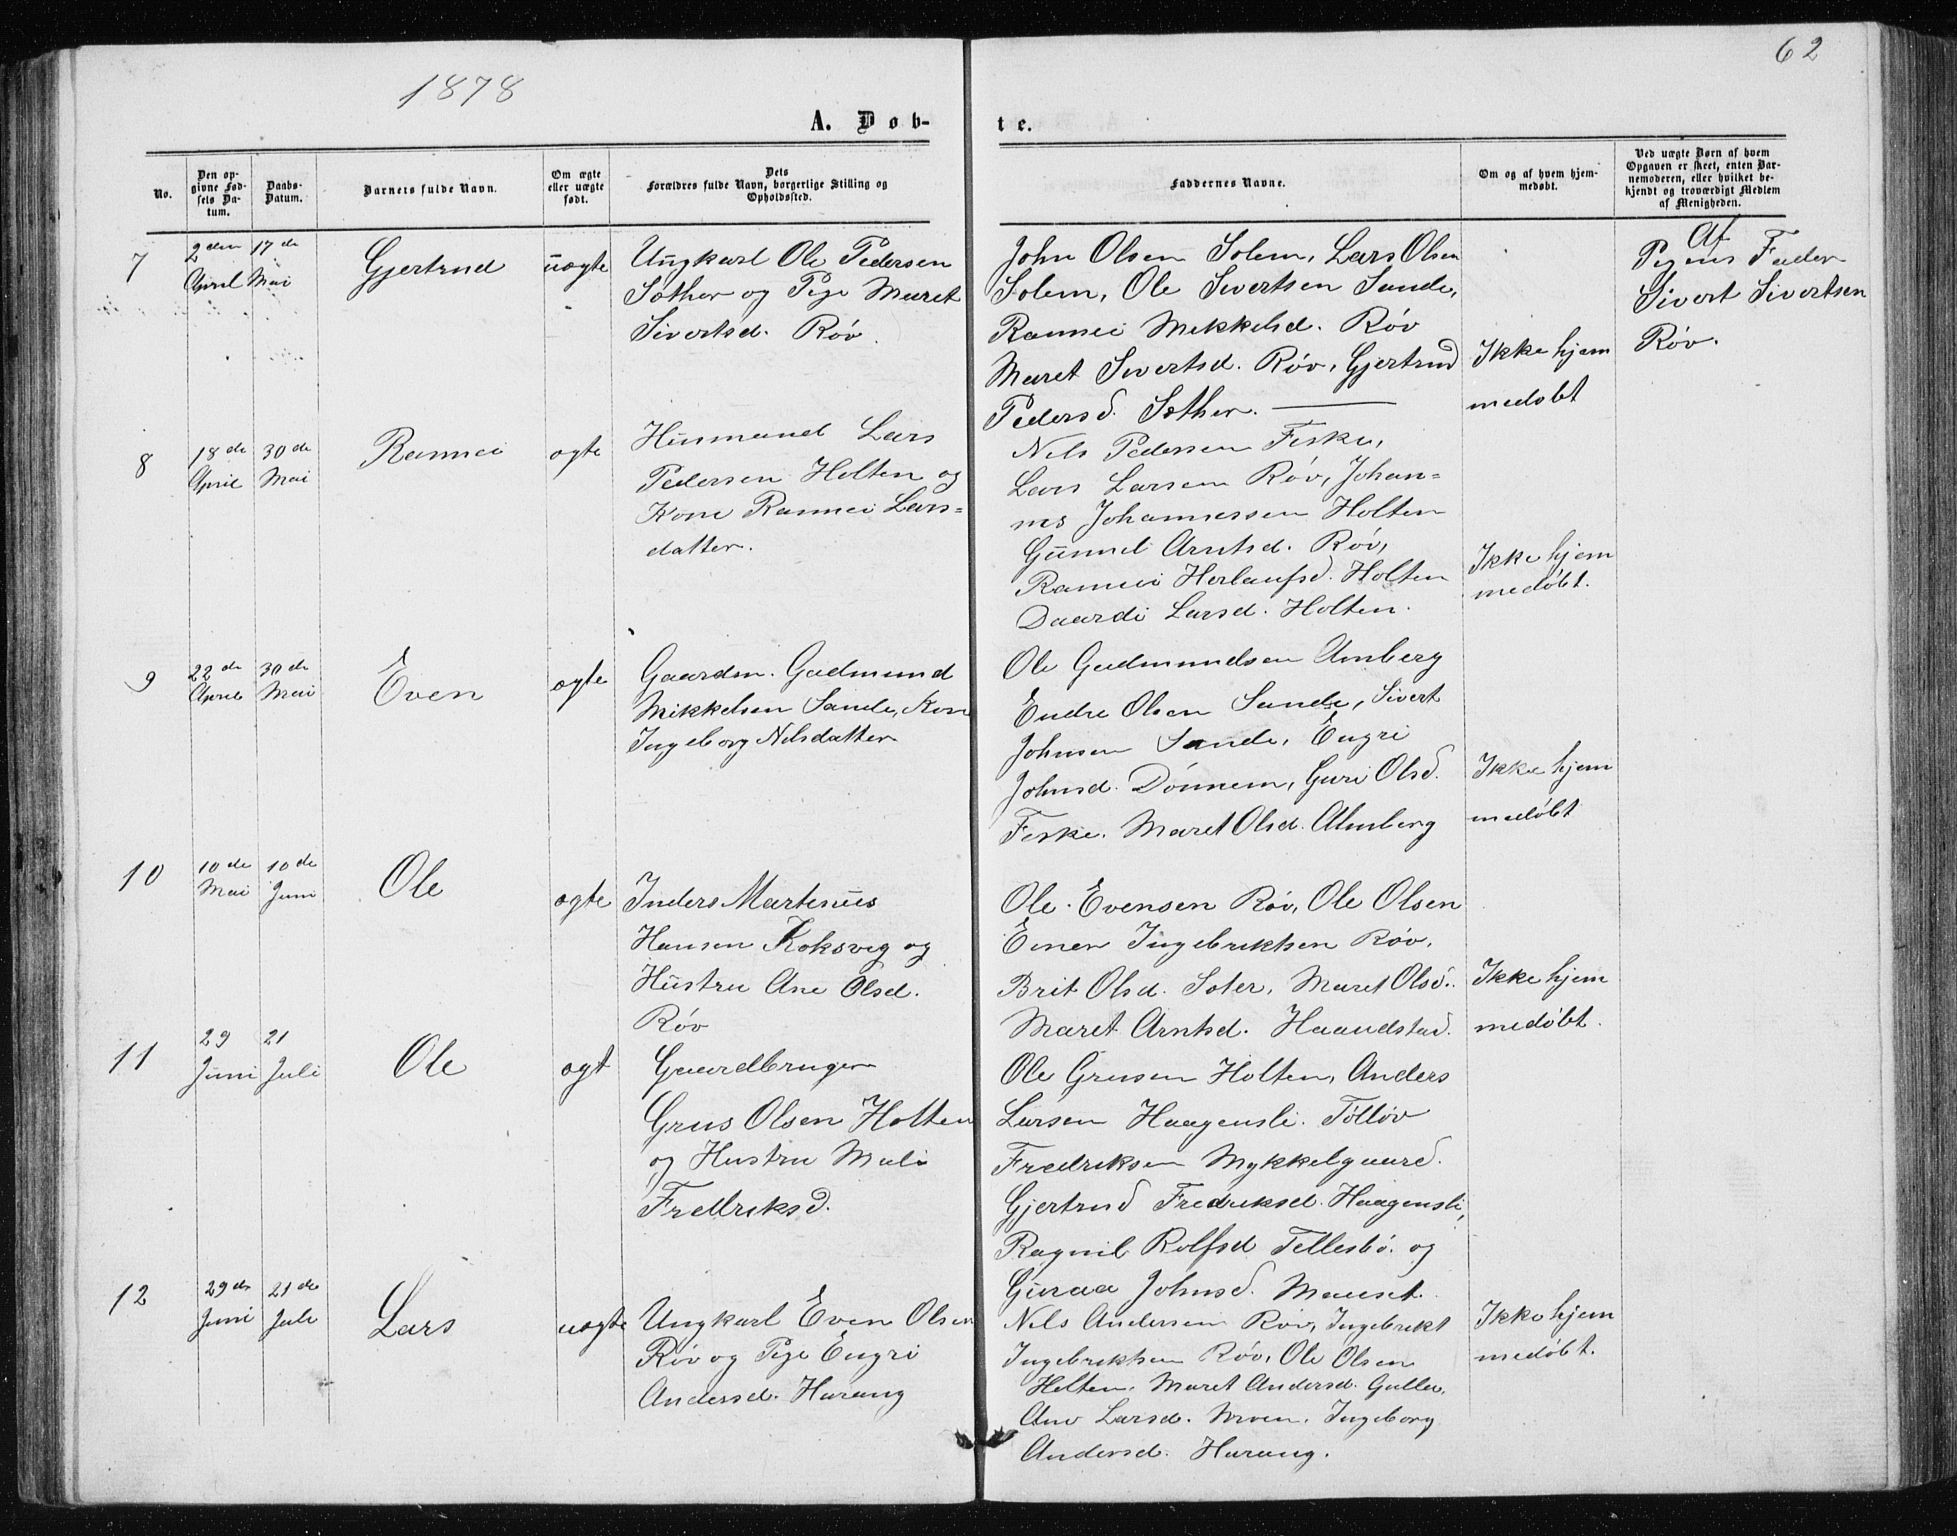 62
1878
A. Døb-
te.
No.
Den op-
givne Fød-
sels Da-
tum.
Daabs-
Datum.
Barnets fulde Navn.
Om ægte
eller uægte
født.
Dets
Forældres fulde Navn, borgerlige Stilling og
Opholdssted.
Faddernes Navne.
Om og af hvem hjem-
medøbt.
Ved uægte Børn af hvem
Opgaven er skeet, enten Bar-
nemoderen, eller hvilket be-
kjendt og troværdigt Medlem
af Menigheden.
7
2den
April
17de
Mai
Gjertrud
uægte
Ungkarl Ole Pedersen
Sæther og Pige Maret
Sivertsd. Røv.
John Olsen Solem, Lars Olsen
Solem, Ole Sivertsen Sande,
Rannei Mikkelsd. Røv
Maret Sivertsd. Røv, Gjertrud
Pedersd. Sæther.
Ikke hjem
medøbt
Af
Pigens Fader
Sivert Sivertsen
Røv.
8
18de
April
30de
Mai
Rannei
ægte
Husmand Lars
Pedersen Holten og
Kone Rannei Lars=
datter.
Nils Pedersen Feske,
Lars Larsen Røv, Johan=
nes Johannessen Holten
Gunnil Arntsd. Røv,
Rannei Herlaufsd. Holten
Daardi Larsd. Holten.
Ikke hjem
medøbt.
9
22de
April
30de
Mai
Even
ægte
Gaardm. Gudmund
Mikkelsen Sande, Kone
Ingeborg Nilsdatter
Ole Gudmundsen Almberg
Endre Olsen Sande, Sivert
Johnsen Sande, Engri
Johnsd. Dønnem, Guri Olsd.
Feske. Maret Olsd. Almberg
Ikke hjem
medøbt
10
10de
Mai
10de
Juni
Ole
ægte
Inders Martinus
Hansen Koksvig og
Hustru Ane Olsd.
Røv
Ole Evensen Røv, Ole Olsen
Einer Ingebriktsen Røv,
Brit Olsd. Soter, Maret Olsd.
Maret Arntsd. Haandstad.
Ikke hjem
medøbt.
11
29
Juni
21
Juli
Ole
ægt
Gaardbruger
Grus Olsen Holten
og Hustru Mali
Fredriksd.
Ole Grusen Holten, Anders
Larsen Haagensli. Tølløv
Fredriksen Mykkelgaard.
Gjertrud Fredriksd. Haagensli,
Ragnil Rolfsd Tellesbø. og
Guraa Johnsd. Mauset.
12
29de
Juni
21de
Juli
Lars
uægte
Ungkarl Even Olsen
Røv og Pige Engri
Andersd. Harang
Nils Andersen Røv, Ingebrikt
Ingebriktsen Røv, Ole Olsen
Holten. Maret Andersd. Guller,
Ane Larsd. Moen. Ingeborg
Andersd. Harang.
Ikke hjem
medøbt.